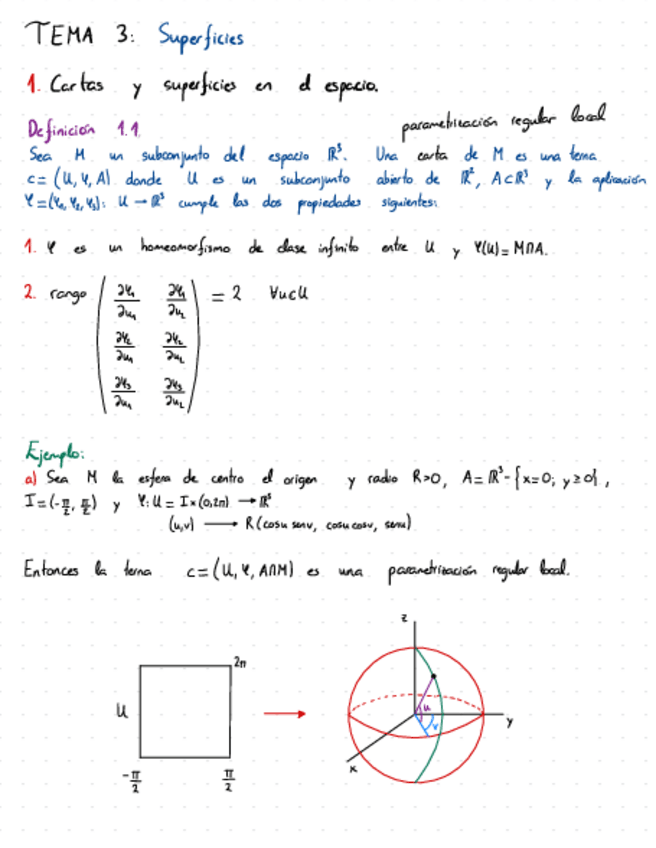 TEMA 3: Superficies
1. Cartas y superficies en el espacio.
parametrización regular local
Definición 1.1
Sea M un subconjunto del espacio ℝ³. Una carta de M es una terna
c=(U,φ,A) donde U es un subconjunto abierto de ℝ², A⊂ℝ³ y la aplicación
φ=(φ₁,φ₂,φ₃): U→ℝ³ cumple las dos propiedades siguientes:
1. φ es un homeomorfismo de clase infinito entre U y φ(U)=M∩A.
2. rango ( ∂φ₁/∂u₁ ∂φ₁/∂u₂ ) = 2 ∀u⊂U
∂φ₂/∂u₁ ∂φ₂/∂u₂
∂φ₃/∂u₁ ∂φ₃/∂u₂
Ejemplo:
a) Sea M la esfera de centro el origen y radio R>0, A=ℝ³-{x=0; y≥0},
I=(-π/2, π/2) y φ:U=I×(0,2π)→ℝ³
(u,v)→R(cosu senv, cosu cosv, senu)
Entonces la terna c=(U,φ,A∩M) es una parametrización regular local.
z
2π
U
u
v
y
x
-π/2 π/2